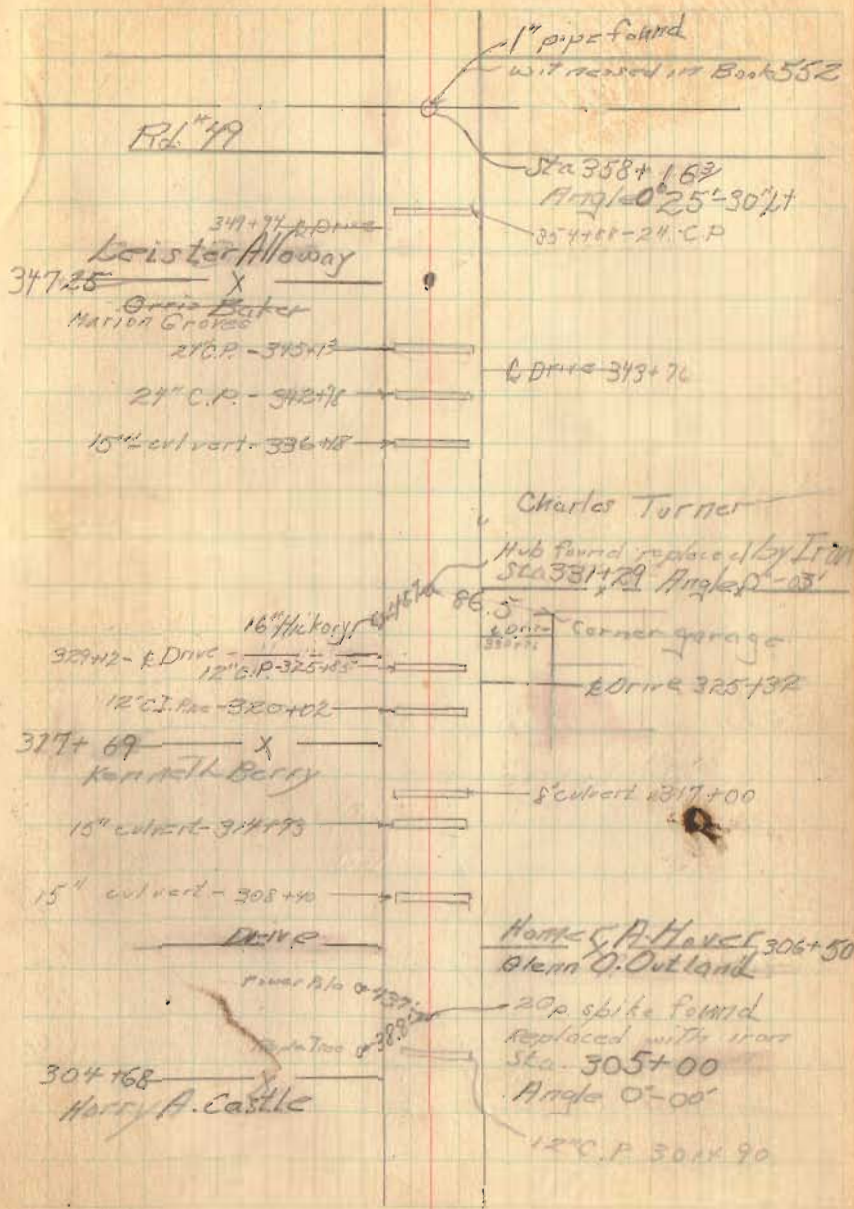 1" pipe found
witnessed in Book 552
Rd. #49
Sta 358+16³
Angle 0°25'-30" Lt
349+94 ℄ Drive
354+88-24" C.P
Leister Alloway
347+25 X
Orrin Baker
Marion Groves
24" C.P. - 345+13
℄ Drive 343+76
24" C.P. - 342+78
15" culvert - 336+18
Charles Turner
Hub found replaced by Iron
Sta 331+29 Angle 0°-03'
86.5
16" Hickory
℄ Drive
Corner garage
329+12 - ℄ Drive
12" C.P. - 325+85
℄ Drive 325+32
12" C.I. Pipe - 320+02
317+69 X
Kenneth Berry
8" culvert 317+00
15" culvert - 314+93
15" culvert - 308+40
Drive
Homer A. Hover 306+50
Glenn O. Outland
Power Pole 43.7
20p. spike found
38.8
Replaced with iron
Tree
Sta. 305+00
304+68 X
Angle 0°-00'
Harry A. Castle
12" C.P.